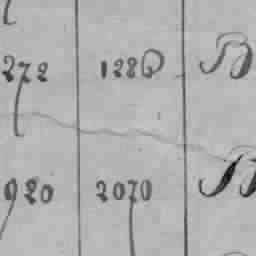 272 1286 B
920 2070 B